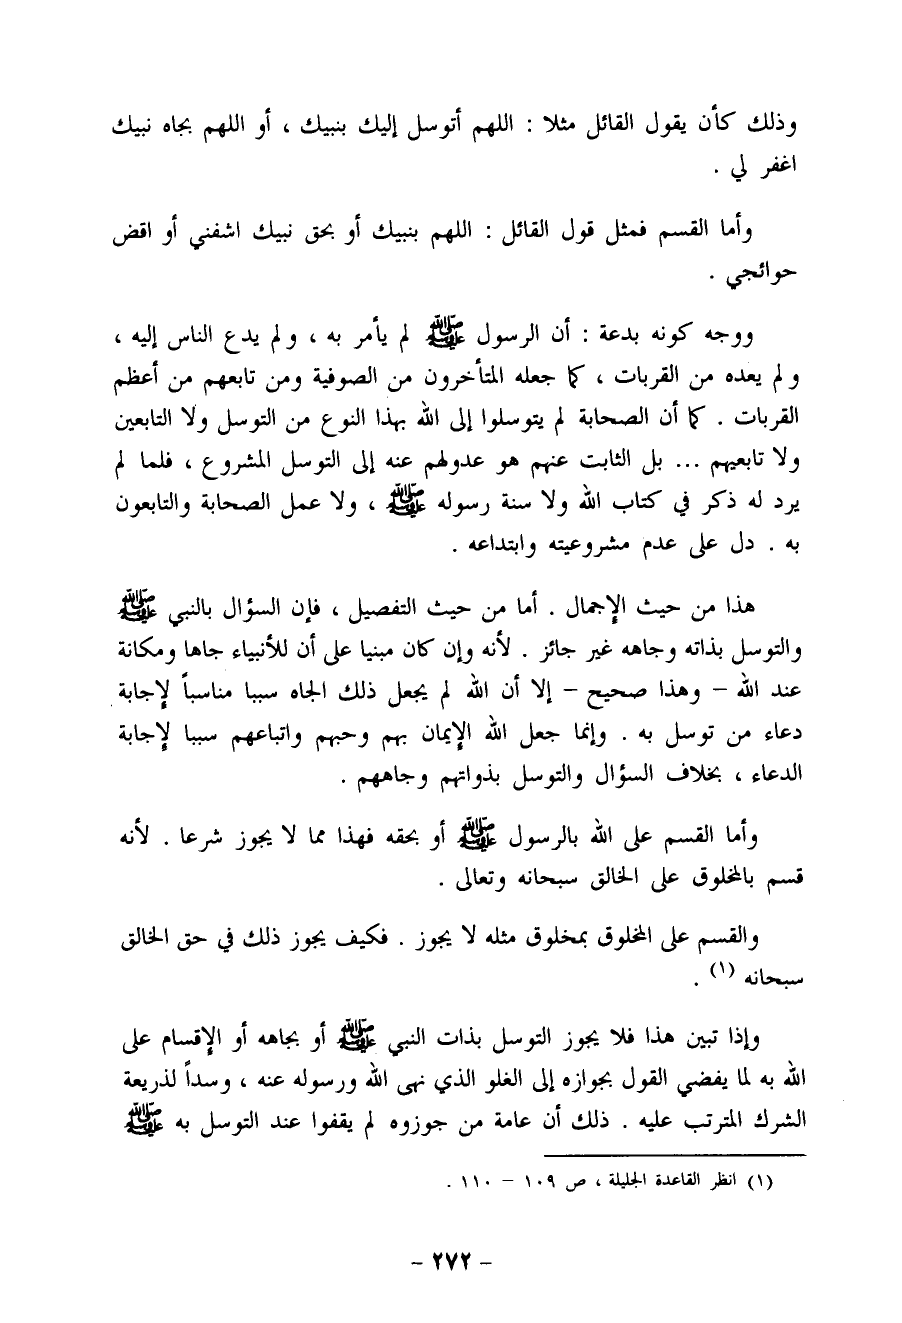 وذلك كأن يقول القائل مثلا : اللهم أتوسل إليك بنبيك ، أو اللهم بجاه نبيك
اغفر لي .
وأما القسم فمثل قول القائل : اللهم بنبيك أو بحق نبيك اشفني أو اقض
حوائجي .
ووجه كونه بدعة : أن الرسول ﷺ لم يأمر به ، ولم يدع الناس إليه ،
ولم يعده من القربات ، كما جعله المتأخرون من الصوفية ومن تابعهم من أعظم
القربات . كما أن الصحابة لم يتوسلوا إلى الله بهذا النوع من التوسل ولا التابعين
ولا تابعيهم ... بل الثابت عنهم هو عدولهم عنه إلى التوسل المشروع ، فلما لم
يرد له ذكر في كتاب الله ولا سنة رسوله ﷺ ، ولا عمل الصحابة والتابعون
به . دل على عدم مشروعيته وابتداعه .
هذا من حيث الإجمال . أما من حيث التفصيل ، فإن السؤال بالنبي ﷺ
والتوسل بذاته وجاهه غير جائز . لأنه وإن كان مبنيا على أن للأنبياء جاها ومكانة
عند الله – وهذا صحيح – إلا أن الله لم يجعل ذلك الجاه سببا مناسباً لإجابة
دعاء من توسل به . وإنما جعل الله الإيمان بهم وحبهم واتباعهم سببا لإجابة
الدعاء ، بخلاف السؤال والتوسل بذواتهم وجاههم .
وأما القسم على الله بالرسول ﷺ أو بحقه فهذا مما لا يجوز شرعا . لأنه
قسم بالمخلوق على الخالق سبحانه وتعالى .
والقسم على المخلوق بمخلوق مثله لا يجوز . فكيف يجوز ذلك في حق الخالق
سبحانه (١) .
وإذا تبين هذا فلا يجوز التوسل بذات النبي ﷺ أو بجاهه أو الإقسام على
الله به لما يفضي القول بجوازه إلى الغلو الذي نهى الله ورسوله عنه ، وسداً لذريعة
الشرك المترتب عليه . ذلك أن عامة من جوزوه لم يقفوا عند التوسل به ﷺ
(١) انظر القاعدة الجليلة ، ص ١٠٩ – ١١٠ .
– ٢٧٢ –